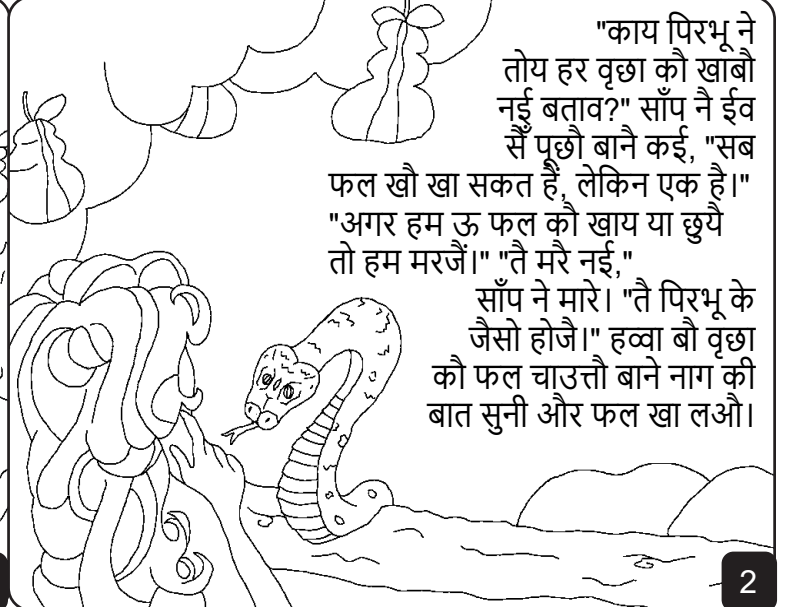 "काय पिरभू ने
तोय हर वृछा कौ खाबौ
नई बताव?" साँप नै ईव
सैं पूछौ बानै कई, "सब
फल खौ खा सकत हैं, लेकिन एक है।"
"अगर हम ऊ फल कौ खाय या छुयै
तो हम मरजैं।" "तै मरै नई,"
साँप ने मारे। "तै पिरभू के
जैसो होजै।" हव्वा बौ वृछा
कौ फल चाउत्तौ बाने नाग की
बात सुनी और फल खा लऔ।
2